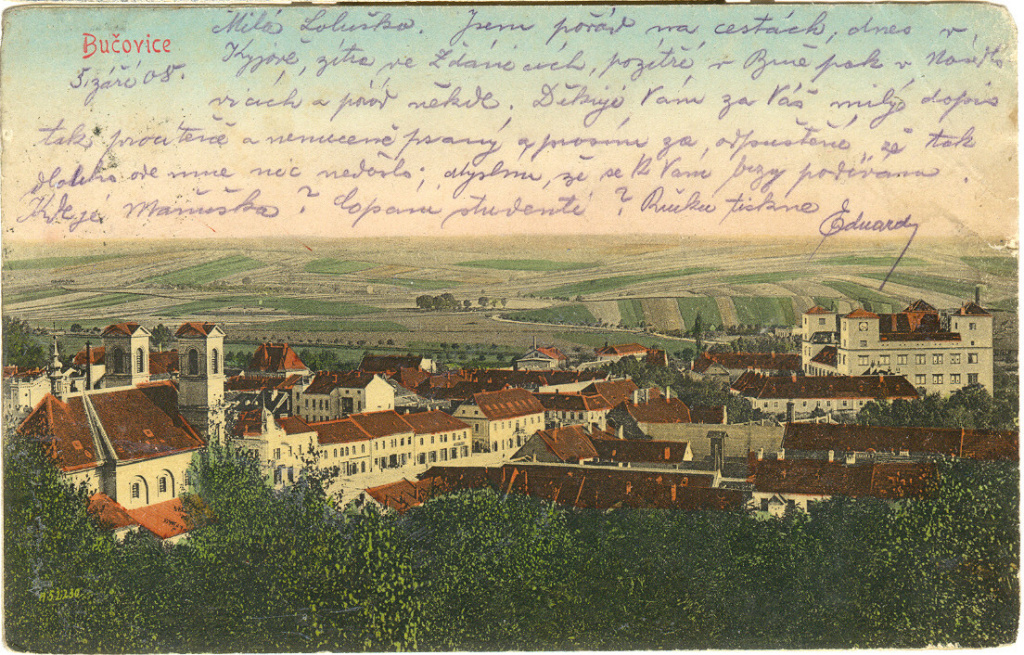 Bučovice
5. září 08.
Milá Loluško. Jsem pořád na cestách, dnes v
Kyjově, zítra ve Ždánicích, pozítří v Brně pak v Nosislo
vicích a pořád někde. Děkuji Vám za Váš milý dopis
tak srdečně a nenuceně psaný a prosím za odpuštění, že tak
dlouho ode mne nic nedošlo; myslím, že se k Vám brzy podívám.
Kde je Mařuška? Copak studenti? Ručku tiskne
Eduard